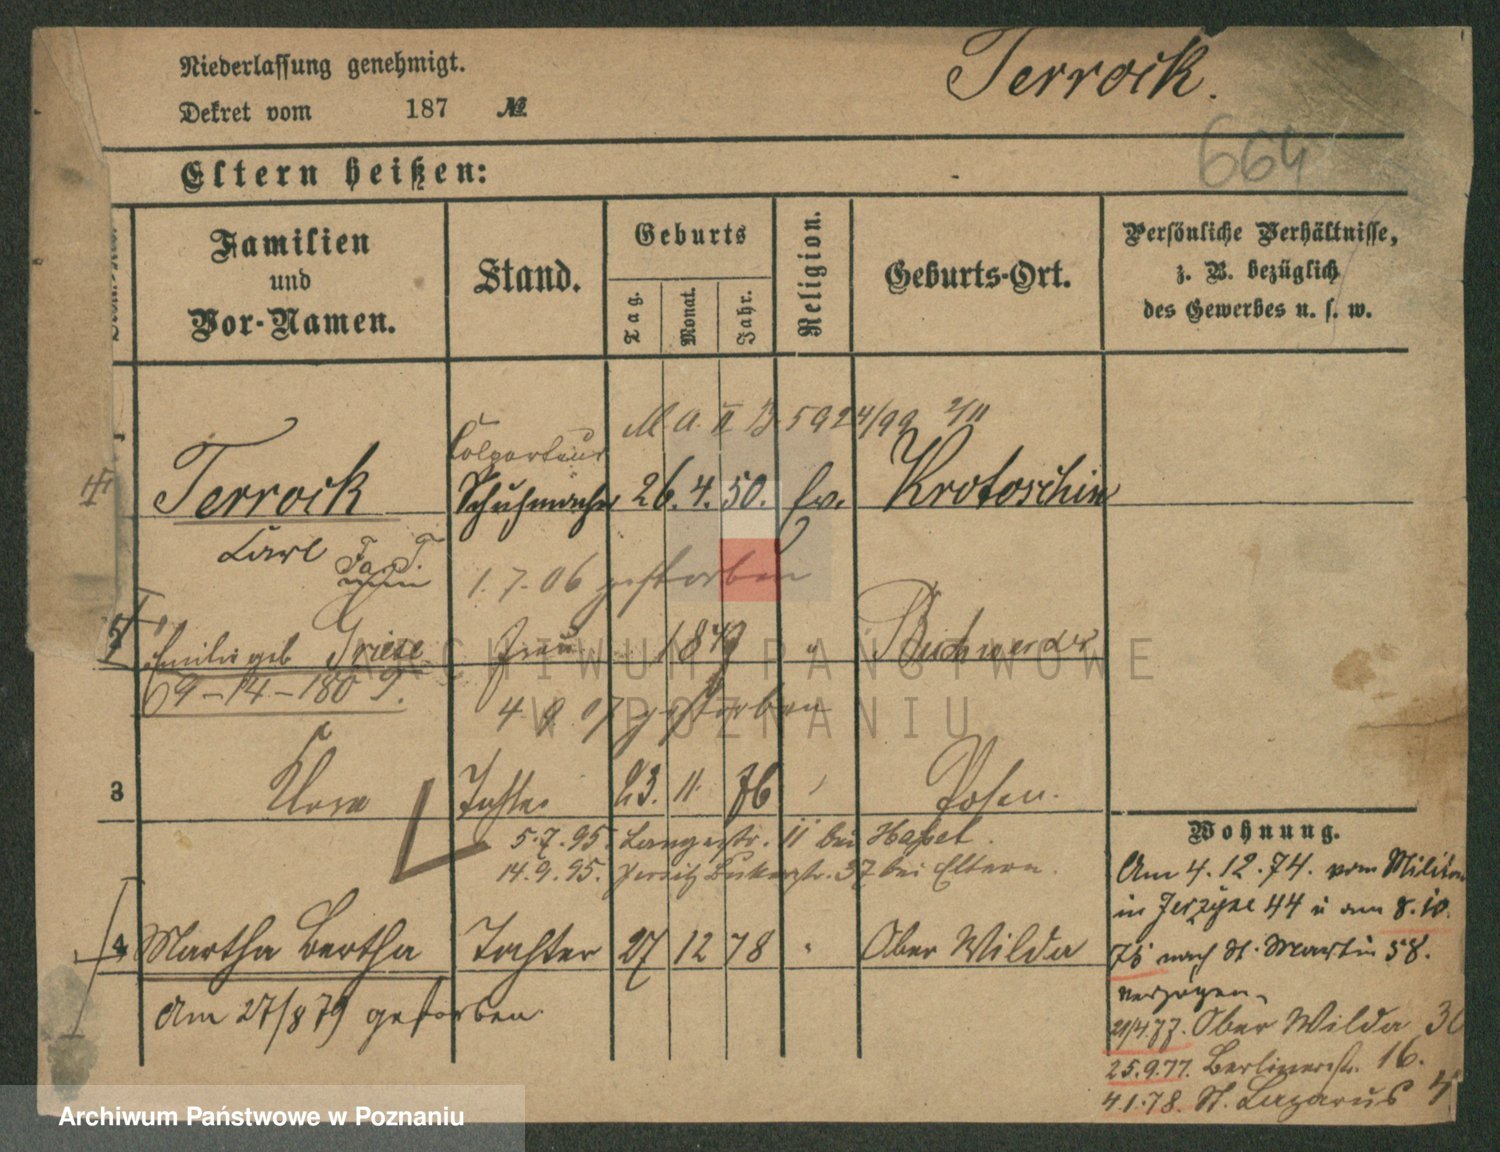 Niederlassung genehmigt.
Terrock.
Dekret vom 187 №
664
Eltern heißen:
Familien und Vor-Namen.
Stand.
Geburts
Tag.
Monat.
Jahr.
Religion.
Geburts-Ort.
Persönliche Verhältnisse,
z. B. bezüglich
des Gewerbes u. s. w.
M A. II B. 5924/99 2/11
Colporteur
Terrock Schuhmacher 26. 4. 50. Ev. Krotoschin
Carl
1.7.06 gestorben
Emilie geb Griese Frau 1849 " Buchwerder
69-14-180
4 9. 07 gestorben
3 Tochter 23. 11. 76 Posen.
5.7.95. Langestr. 11 bei
14.9.95. Jersitz 37 bei Eltern.
4 Martha Bertha Tochter 27 12 78 " Ober Wilda
Am 27/8 79 gestorben.
Wohnung.
Am 4.12.74. vom Militär
in 44 u am 8.10.
75 nach St. Martin 58.
verzogen.
21/4.77. Ober Wilda
25.9.77. Berlinerstr. 16.
4.1.78. St. Lazarus
ARCHIWUM PAŃSTWOWE
W POZNANIU
Archiwum Państwowe w Poznaniu